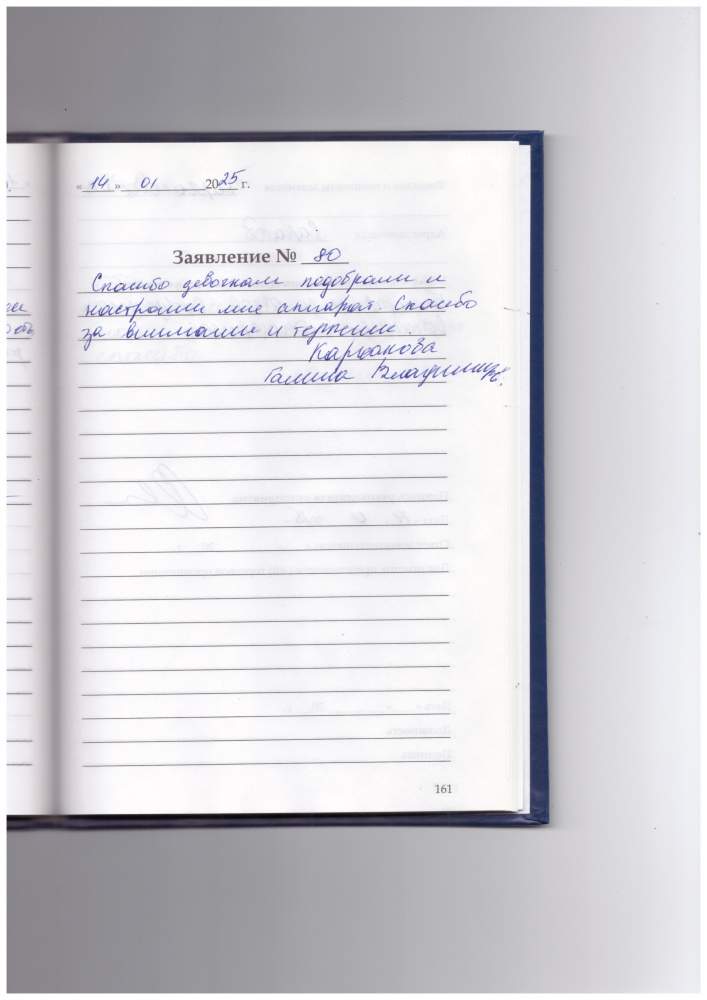 « 14 » 01 2025 г.
Заявление № 80
Спасибо девочкам подобрали и
настроили мне аппарат. Спасибо
за внимание и терпение.
Галина
161